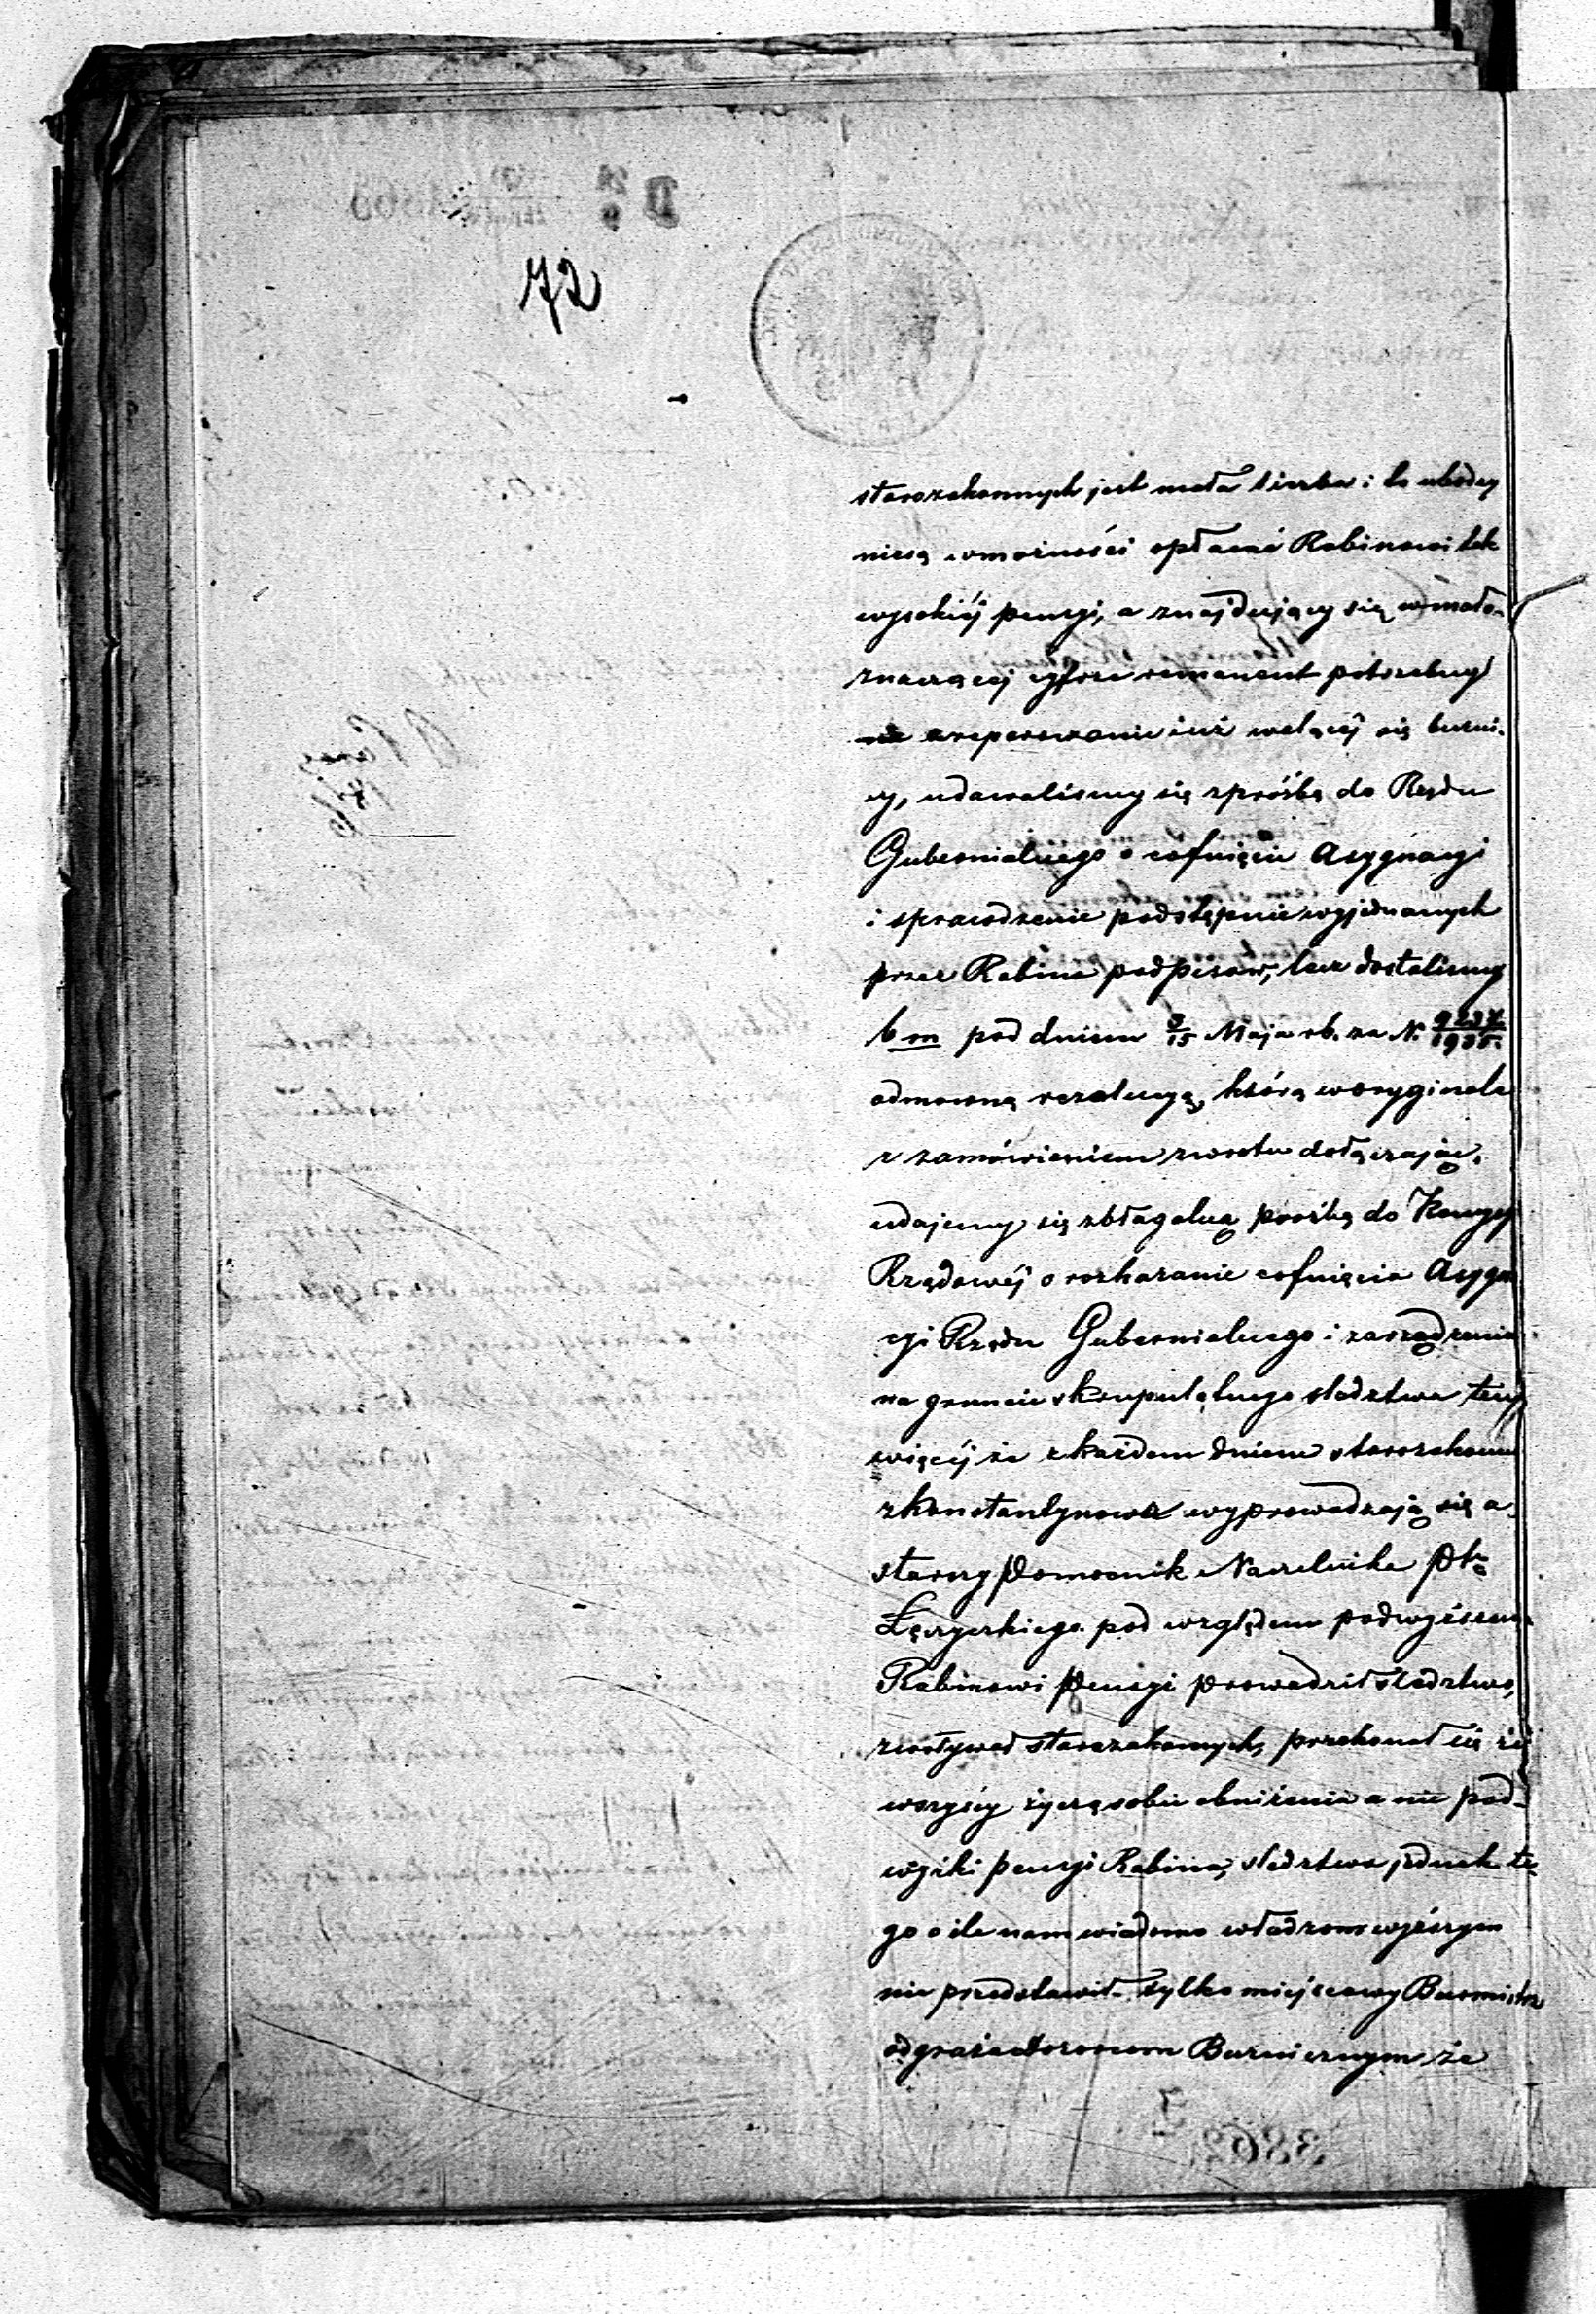 72
starozakonnych jest mała liczba i to ubodzy
niesą wmożności opłacać Rabinowi tak
wysokiéj pensyi, a znajdujący się wmało-
znaczącej cyfrze remanent potrzebny
na zreperowanie już walącéj się bużni-
cy, udawalismy się zprośbą do Rządu
Gubernialnego o cofnięcie Asygnacyi
i sprawdzenie podstępnie wyjednanych
przez Rabina podpisow, lecz dostalismy
b m pod dniem 3/15 Maja rb. za N.
odmowną rezolucyą, którą woryginale
z zamówieniem zwrotu dołączając,
udajemy się zbłagalną prośbą do Komyssyi
Rządowéj o rozkazanie cofnięcia Asygna
cyi Rządu Gubernialnego i zarządzenia
na gruncie skrupulątnego sledztwa tem
więcéj że zkażdem dniem starozakonni
zKonstantynowa wyprowadzają się a
starszy Pomocnik Naczelnika Ptu
Łęczyckiego pod względem podwyższenia
Rabinowi pensyi prowadził sledztwo,
zwoływał starozakonnych, przekonał się że
wszyscy życzą sobie obniżenia a nie pod-
wyżki pensyi Rabina, sledztwa jednak te-
go o ile nam wiadomo władzom wyższym
nie przedstawił tylko miejscowy Burmistrz
odgraża dozorom Bużnicznym że